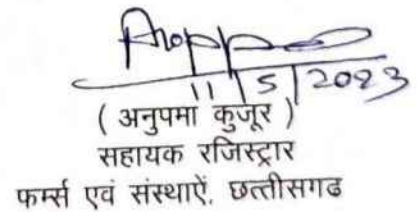 11/5/2023
( अनुपमा कुजूर )
सहायक रजिस्ट्रार
फर्म्स एवं संस्थाऐं, छत्तीसगढ